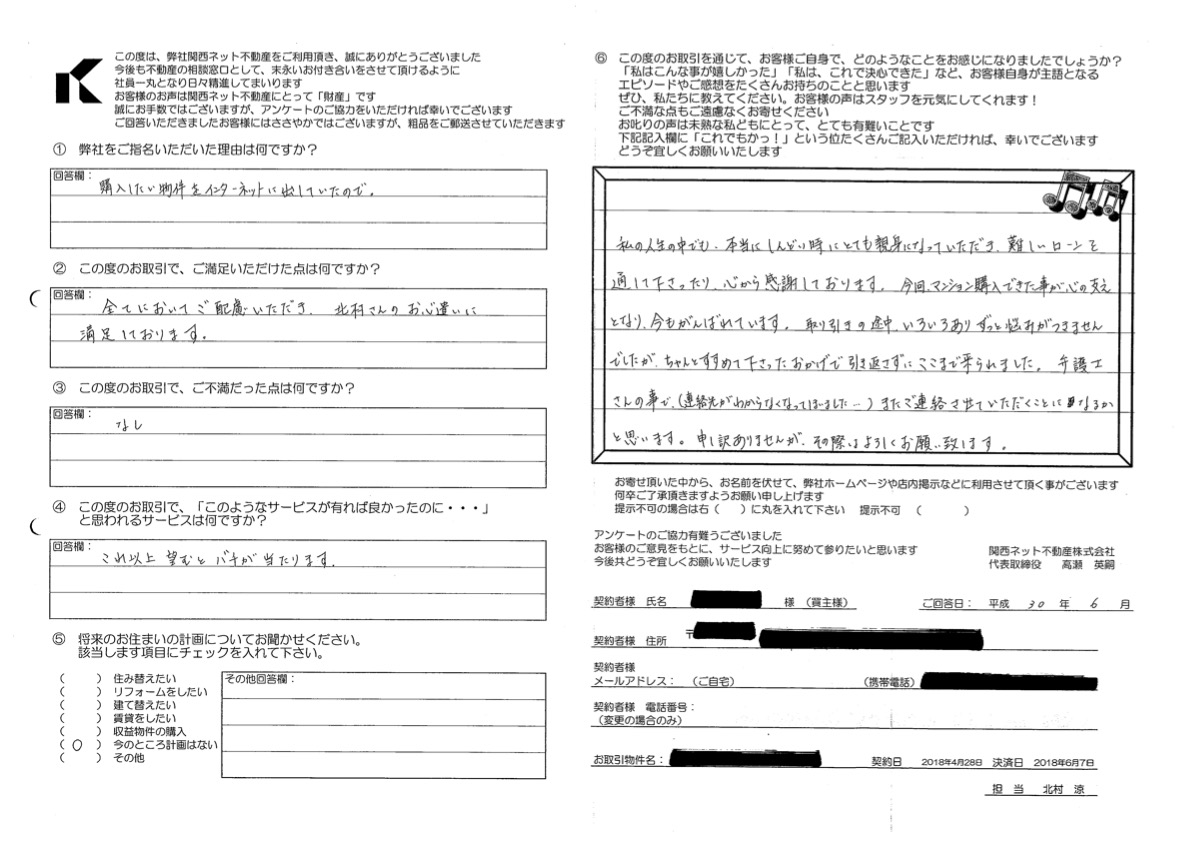 この度は、弊社関西ネット不動産をご利用頂き、誠にありがとうございました
今後も不動産の相談窓口として、末永いお付き合いをさせて頂けるように
社員一丸となり日々精進してまいります
お客様のお声は関西ネット不動産にとって「財産」です
誠にお手数ではございますが、アンケートのご協力をいただければ幸いでございます
ご回答いただきましたお客様にはささやかではございますが、粗品をご郵送させていただきます
① 弊社をご指名いただいた理由は何ですか？
回答欄：
購入したい物件をインターネットに出していたので。
② この度のお取引で、ご満足いただけた点は何ですか？
回答欄：
全てにおいてご配慮いただき、北村さんのお心遣いに
満足しております。
③ この度のお取引で、ご不満だった点は何ですか？
回答欄：
なし
④ この度のお取引で、「このようなサービスが有れば良かったのに・・・」
と思われるサービスは何ですか？
回答欄：
これ以上望むとバチが当たります。
⑤ 将来のお住まいの計画についてお聞かせください。
該当します項目にチェックを入れて下さい。
（　　）住み替えたい
（　　）リフォームをしたい
（　　）建て替えたい
（　　）賃貸をしたい
（　　）収益物件の購入
（ ○ ）今のところ計画はない
（　　）その他
その他回答欄：
⑥ この度のお取引を通じて、お客様ご自身で、どのようなことをお感じになりましたでしょうか？
「私はこんな事が嬉しかった」「私は、これで決心できた」など、お客様自身が主語となる
エピソードやご感想をたくさんお持ちのことと思います
ぜひ、私たちに教えてください。お客様の声はスタッフを元気にしてくれます！
ご不満な点もご遠慮なくお寄せください
お叱りの声は未熟な私どもにとって、とても有難いことです
下記記入欄に「これでもかっ！」という位たくさんご記入いただければ、幸いでございます
どうぞ宜しくお願いいたします
私の人生の中でも、本当にしんどい時にとても親身になっていただき、難しいローンを
通して下さったり、心から感謝しております。今回、マンション購入できた事が心の支え
となり、今もがんばれています。取り引きの途中、いろいろありずっと悩みがつきません
でしたが、ちゃんとすすめて下さったおかげで引き返さずにここまで来られました。弁護士
さんの事で、（連絡先がわからなくなってしまいました…）またご連絡させていただくことになるか
と思います。申し訳ありませんが、その際はよろしくお願い致します。
お寄せ頂いた中から、お名前を伏せて、弊社ホームページや店内掲示などに利用させて頂く事がございます
何卒ご了承頂きますようお願い申し上げます
提示不可の場合は右（　）に丸を入れて下さい　提示不可（　　）
アンケートのご協力有難うございました
お客様のご意見をもとに、サービス向上に努めて参りたいと思います
今後共どうぞ宜しくお願いいたします
関西ネット不動産株式会社
代表取締役　高瀬　英嗣
契約者様 氏名　様（買主様）　ご回答日：　平成 30 年 6 月
契約者様 住所　〒
契約者様
メールアドレス：（ご自宅）（携帯電話）
契約者様 電話番号：
（変更の場合のみ）
お取引物件名：　契約日　2018年4月28日　決済日　2018年6月7日
担　当　北村　涼